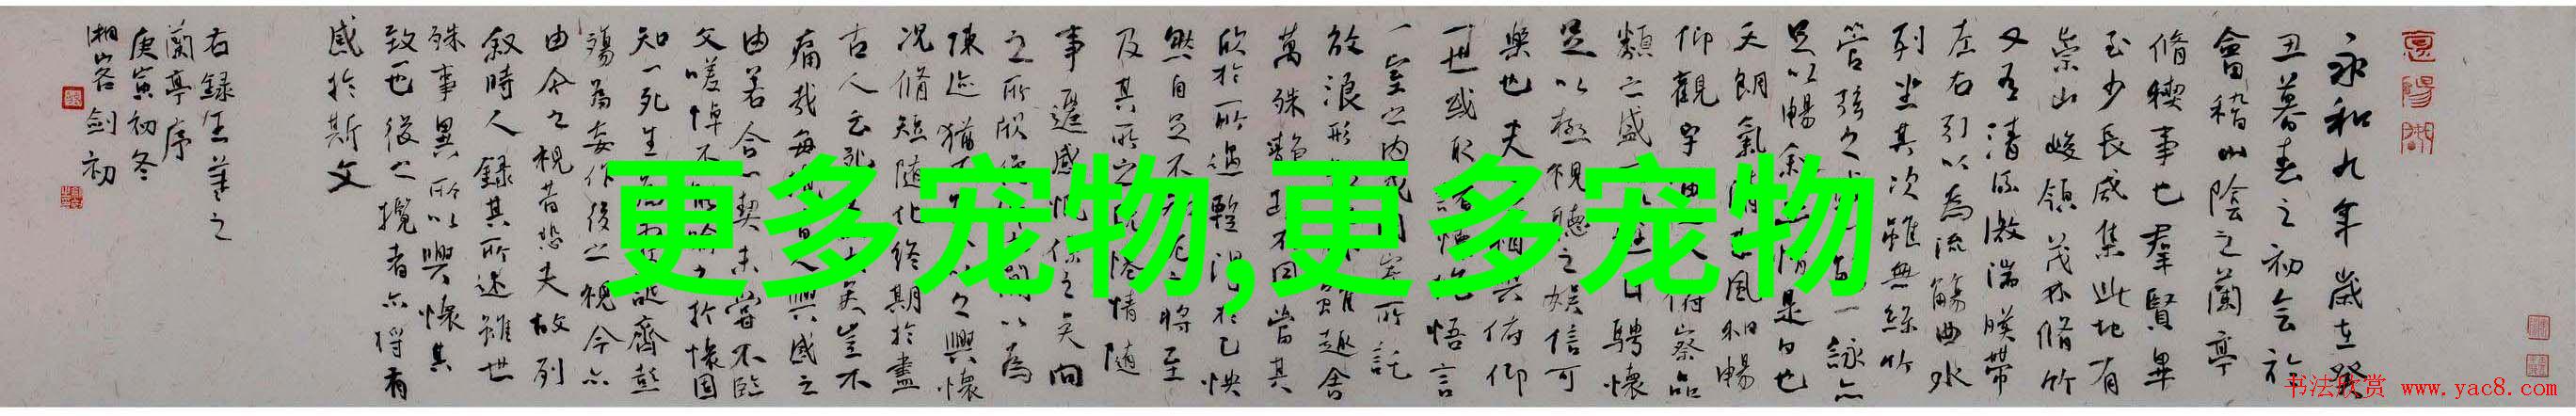 永和九年歲在癸
丑暮春之初會於
會稽山陰之蘭亭
脩稧事也羣賢畢
至少長咸集此地有
崇山峻領茂林脩竹
又有清流激湍暎帶
左右引以為流觴曲水
列坐其次雖無絲竹
管弦之
詠亦
足以暢叙
情是日也
天朗氣清
風和暢
仰觀宇
俯察品
類之盛
騁懷
足以極視聽之娛信可
樂也夫
相與俯仰
一世或取諸懷抱悟言
一室之內
所託
放浪形
雖趣舍
萬殊靜躁不同當其
欣於所遇暫得於己快
然自足不知老之將至
及其所之既惓情隨
事遷感慨係之矣向
之所欣
以為
陳迹猶不
以之興懷
況脩短隨化終期於盡
古人云死
矣豈不
痛哉每
興感之
由若合一契未嘗不臨
文嗟悼不能喻之於懷固
知一死生為虛誕齊彭
殤為妄作後之視今亦
由今之視昔悲夫故列
叙時人錄其所述雖世
殊事異所以興懷其
致一也後之攬者亦將有
感於斯文
右録王羲之
蘭亭序
庚寅初冬
湘客劍初
更多宠物,更多宠物
书法欣赏 www.yac8.com